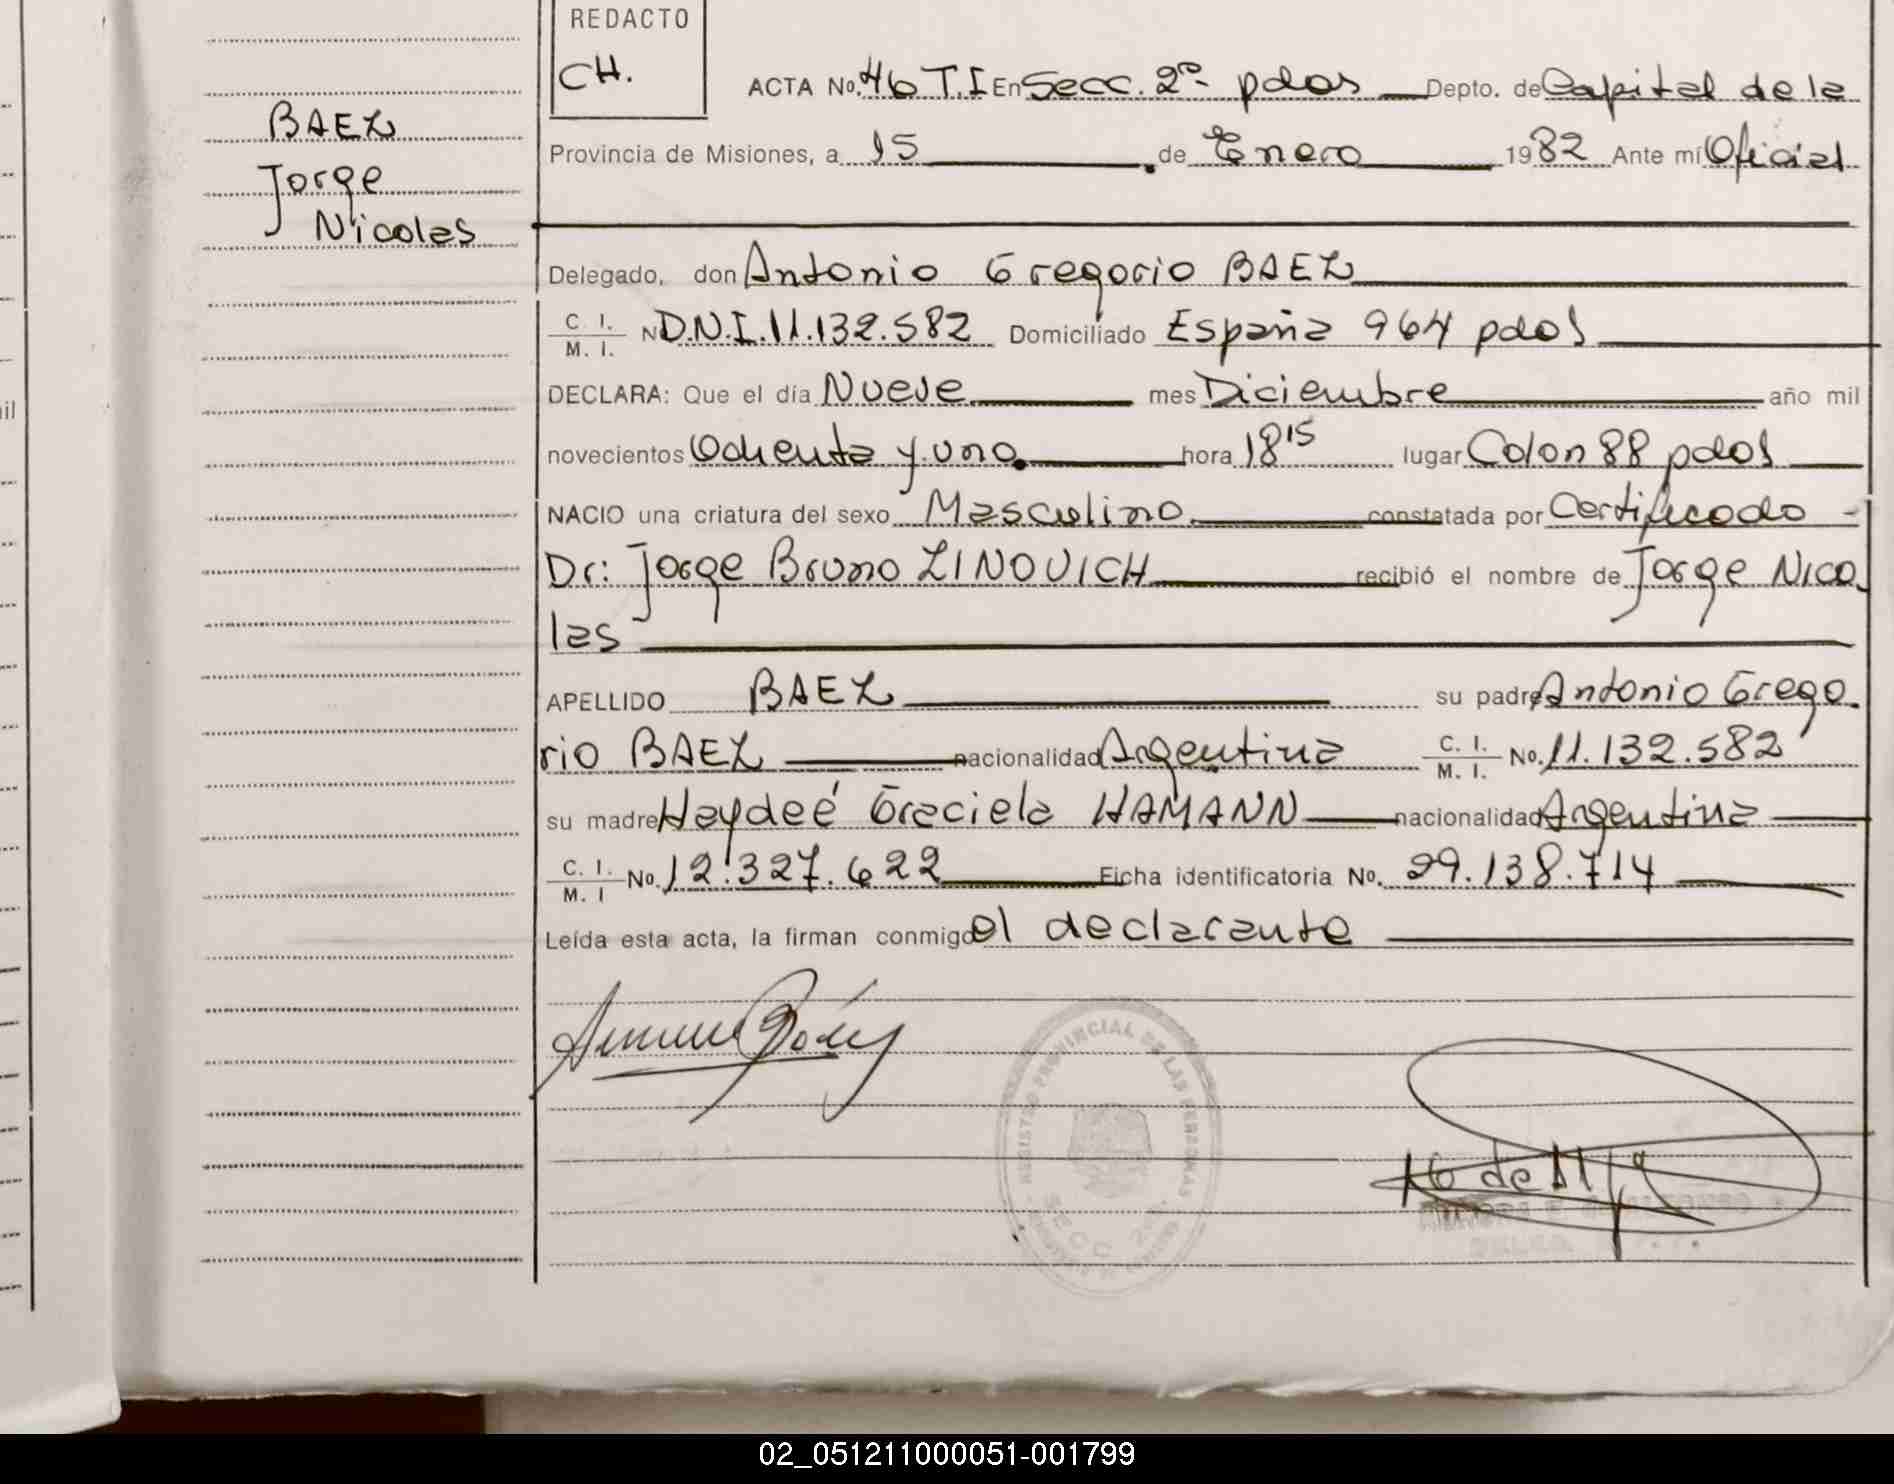 REDACTO
CH.
BAEZ
Jorge
Nicolas
ACTA No. 46 T.I En Secc. 2º- pdas Depto. de Capital de la
Provincia de Misiones, a 15 de Enero 1982 Ante mí Oficial
Delegado, don Antonio Gregorio BAEZ
C. I.
M. I. N D.N.I. 11.132.582 Domiciliado España 964 pdas
DECLARA: Que el día Nueve mes Diciembre año mil
novecientos Ochenta y uno. hora 18 15 lugar Colon 88 pdas
NACIO una criatura del sexo Masculino constatada por Certificado -
Dr: Jorge Bruno LINOVICH recibió el nombre de Jorge Nico-
las
APELLIDO BAEZ su padre Antonio Grego-
rio BAEZ nacionalidad Argentina C. I.
M. I. No. 11.132.582
su madre Haydeé Graciela HAMANN nacionalidad Argentina
C. I.
M. I No. 12.327.622 Ficha identificatoria No. 29.138.714
Leída esta acta, la firman conmigo el declarante
REGISTRO PROVINCIAL DE LAS PERSONAS
SECC
02_051211000051-001799